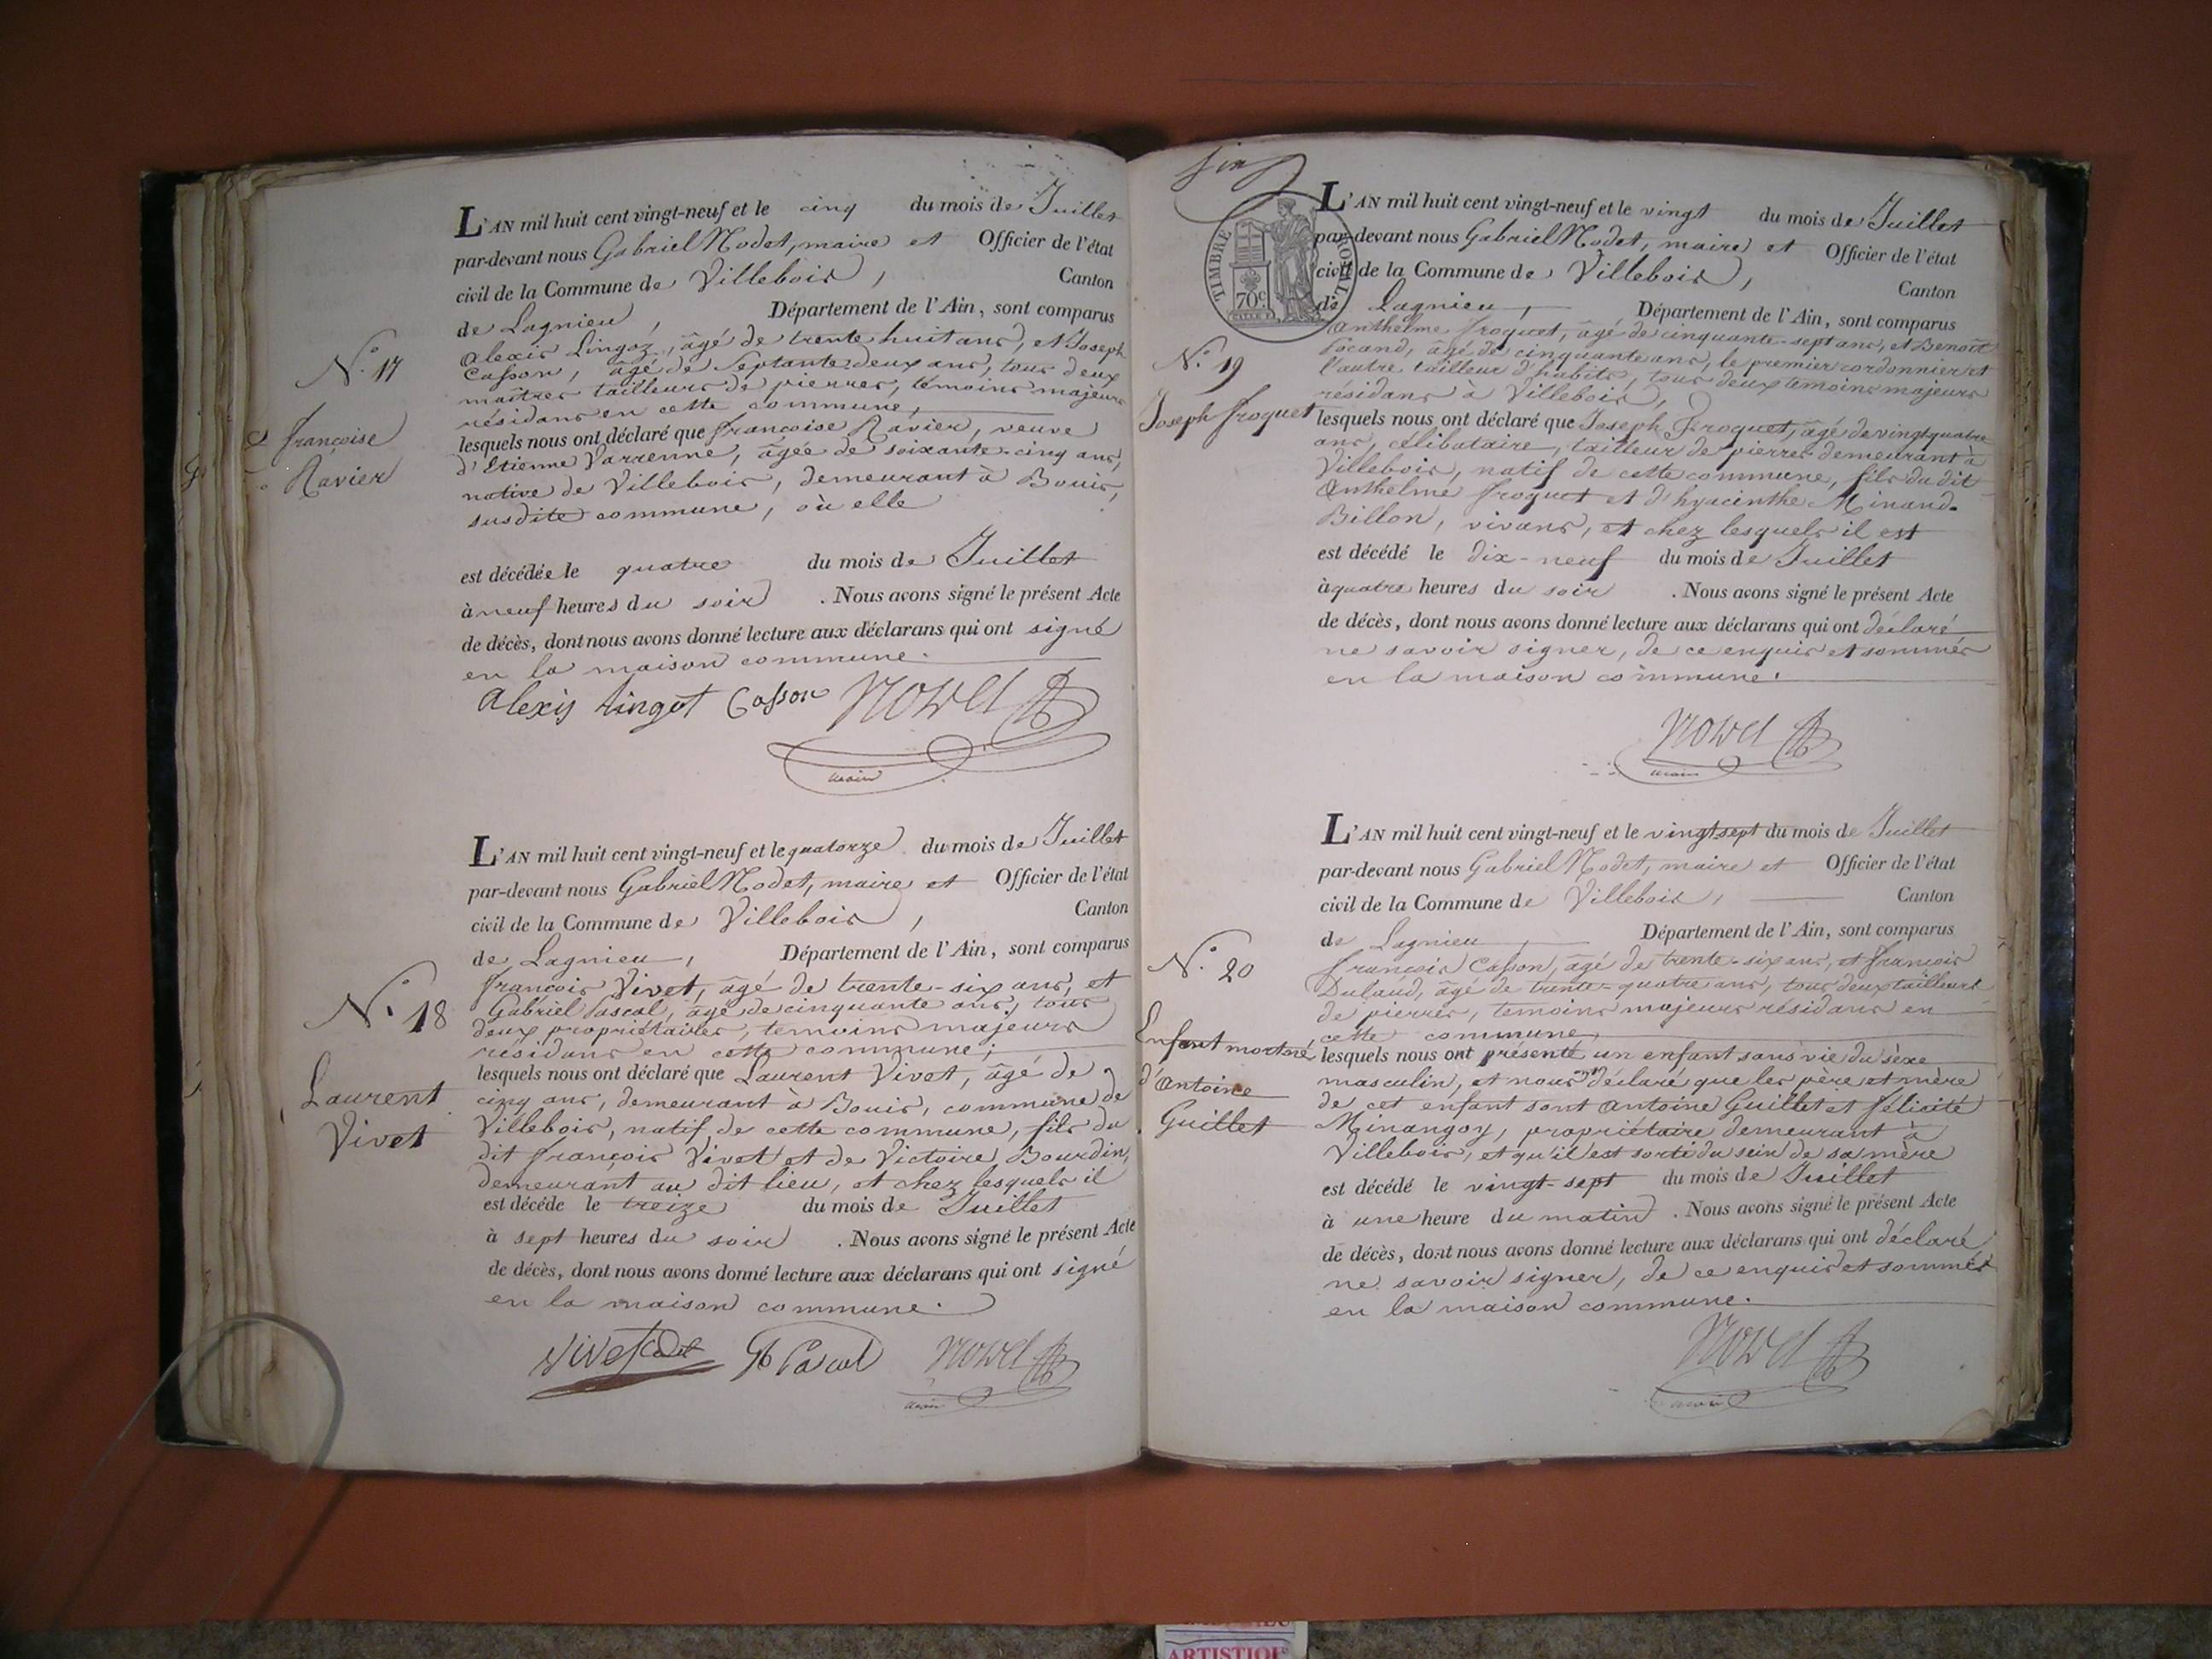 N.° 17
françoise
Ravier
L'AN mil huit cent vingt-neuf et le cinq du mois de Juillet
par-devant nous Gabriel Nodet, maire et Officier de l'état
civil de la Commune de Villebois, Canton
de Lagnieu, Département de l'Ain, sont comparus
alexis Lingoz, âgé de trente huit ans, et Joseph
Casson, âgé de Septante deux ans, tous deux
maîtres tailleurs de pierres, témoins majeurs
résidans en cette commune,
lesquels nous ont déclaré que françoise Ravier, veuve
d'Etienne Varrenne, âgée de soixante-cinq ans,
native de Villebois, demeurant à Bouis,
susdite commune, où elle
est décédée le quatre du mois de Juillet
à neuf heures du soir. Nous avons signé le présent Acte
de décès, dont nous avons donné lecture aux déclarans qui ont signé
en la maison commune.
alexis Lingot Casson Nodet
maire
N.° 18
Laurent
Vivet
L'AN mil huit cent vingt-neuf et le quatorze du mois de Juillet
par-devant nous Gabriel Nodet, maire et Officier de l'état
civil de la Commune de Villebois, Canton
de Lagnieu, Département de l'Ain, sont comparus
françois Vivet, âgé de trente-six ans, et
Gabriel Pascal, âgé de cinquante ans, tous
deux propriétaires, temoins majeurs
résidans en cette commune;
lesquels nous ont déclaré que Laurent Vivet, âgé de
cinq ans, demeurant à Bouis, commune de
Villebois, natif de cette commune, fils du
dit françois Vivet et de Victoire Bourdin,
demeurant au dit lieu, et chez lesquels il
est décéde le treize du mois de Juillet
à sept heures du soir. Nous avons signé le présent Acte
de décès, dont nous avons donné lecture aux déclarans qui ont signé
en la maison commune.
Vivet Cadet Gb Pascal Nodet
maire
TIMBRE ROYAL
70c.
N.° 19
Joseph froquet
L'AN mil huit cent vingt-neuf et le vingt du mois de Juillet
par-devant nous Gabriel Nodet, maire et Officier de l'état
civil de la Commune de Villebois, Canton
de Lagnieu, Département de l'Ain, sont comparus
Anthelme froquet, âgé de cinquante-sept ans, et Benoît
Pocand, âgé de cinquante ans, le premier cordonnier et
l'autre tailleur d'habits, tous deux temoins majeurs
résidans à Villebois,
lesquels nous ont déclaré que Joseph froquet, âgé de vingt quatre
ans, célibataire, tailleur de pierres demeurant à
Villebois, natif de cette commune, fils du dit
Anthelme froquet et d'hyacinthe Minand-
Billon, vivans, et chez lesquels il est
est décédé le dix-neuf du mois de Juillet
à quatre heures du soir. Nous avons signé le présent Acte
de décès, dont nous avons donné lecture aux déclarans qui ont déclaré
ne savoir signer, de ce enquis et sommés
en la maison commune.
Nodet
maire
N.° 20
Enfant mortné
d'antoine
Guillet
L'AN mil huit cent vingt-neuf et le vingtsept du mois de Juillet
par-devant nous Gabriel Nodet, maire et Officier de l'état
civil de la Commune de Villebois, Canton
de Lagnieu, Département de l'Ain, sont comparus
françois Casson, âgé de trente-six ans, et françois
Dulaud, âgé de trente-quatre ans, tous deux tailleurs
de pierres, temoins majeurs résidans en
cette commune,
lesquels nous ont présenté un enfant sans vie du sèxe
masculin, et nous ont déclaré que les père et mère
de cet enfant sont antoine Guillet et félicité
Minangoy, propriétaire demeurant à
Villebois, et qu'il est sorti du sein de sa mère
est décédé le vingt-sept du mois de Juillet
à une heure du matin. Nous avons signé le présent Acte
de décès, dont nous avons donné lecture aux déclarans qui ont déclaré
ne savoir signer, de ce enquis et sommés
en la maison commune.
Nodet
maire
ARTISTIQUE